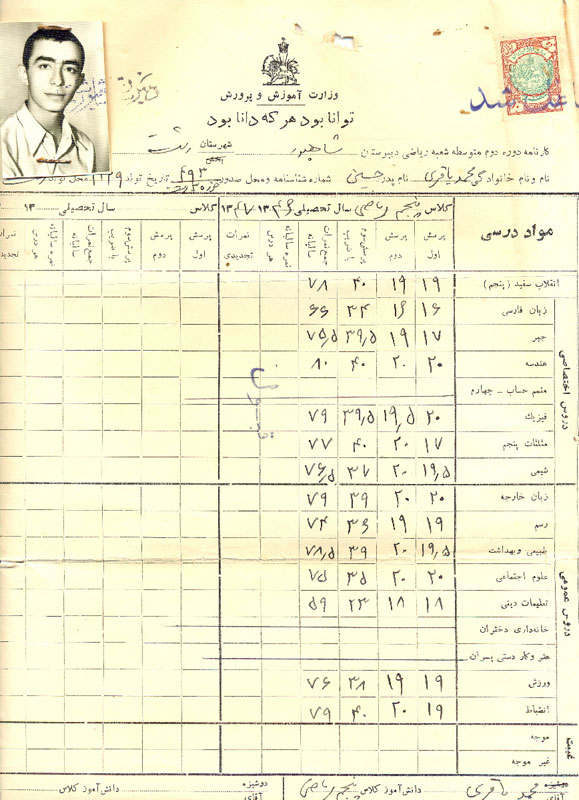 وزارت آموزش و پرورش
توانا بود هر که دانا بود
باطل شد
کارنامه دوره دوم متوسطه شعبه ریاضی دبیرستان شاهپور شهرستان رشت
بخش
نام و نام خانوادگی محمد باقری نام پدر حسین شماره شناسنامه و محل صدور ۴۹۳ تاریخ تولد ۱۳۲۹ محل تولد رشت
مواد درسی کلاس پنجم ریاضی سال تحصیلی ۱۳ کلاس سال تحصیلی ۱۳
پرسش اول پرسش دوم پرسش سوم با ضریب جمع نمرات سالیانه نمره سالیانه هر درس نمرات تجدیدی پرسش اول پرسش دوم پرسش سوم با ضریب جمع نمرات سالیانه نمره سالیانه هر درس نمرات تجدیدی
دروس اختصاصی
انقلاب سفید (پنجم) ۱۹ ۱۹ ۴۰ ۷۸
زبان فارسی ۱۶ ۱۶ ۳۴ ۶۶
جبر ۱۷ ۱۹ ۳۹٫۵ ۷۵٫۵
هندسه ۲۰ ۲۰ ۴۰ ۸۰
متمم حساب - چهارم
فیزیك ۲۰ ۱۹٫۵ ۳۹٫۵ ۷۹
مثلثات پنجم ۱۷ ۲۰ ۴۰ ۷۷
شیمی ۱۹٫۵ ۲۰ ۳۷ ۷۶٫۵
قبول
دروس عمومی
زبان خارجه ۲۰ ۲۰ ۳۹ ۷۹
رسم ۱۹ ۱۹ ۳۶ ۷۴
طبیعی وبهداشت ۱۹٫۵ ۲۰ ۳۹ ۷۸٫۵
علوم اجتماعی ۲۰ ۲۰ ۳۵ ۷۵
تعلیمات دینی ۱۸ ۱۸ ۲۳ ۵۹
خانه‌داری دختران
هنر وکار دستی پسران
ورزش ۱۹ ۱۹ ۳۸ ۷۶
انضباط ۱۹ ۲۰ ۴۰ ۷۹
غیبت
موجه
غیر موجه
دوشیزه آقای محمد باقری دانش‌آموز کلاس پنجم ریاضی
دوشیزه آقای دانش‌آموز کلاس